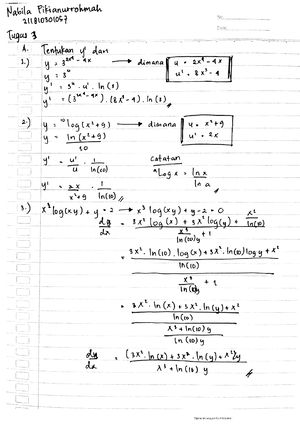 Nabila Pitianurrohmah
211810301057
Tugas 3
A. Tentukan y' dari
1.) y = 3^(2x⁴-4x) → dimana u = 2x⁴-4x
y = 3^u u' = 8x³-4
y' = 3^u . u' . ln (3)
y' = (3^(2x⁴-4x)) . (8x³-4) . ln (3)
2.) y = ¹⁰log (x²+9) → dimana u = x²+9
y = ln (x²+9) / 10 u' = 2x
y' = u'/u . 1/ln(10) catatan
ᵃLog x = ln x / ln a
y' = 2x/(x²+9) . 1/ln(10)
3.) x³ log (xy) + y = 2 → x³ log (xy) + y - 2 = 0
dy/dx = 3x² log (x) + 3x² log (y) + x²/ln(10)
x³/ln(10)y + 1
= 3x² . ln (10) . log (x) + 3x² . ln (10) log y + x²
ln (10)
x³/ln(10)y + 1
= 3x² . ln (x) + 3x² . ln (y) + x²
ln (10)
x³ + ln (10) y
ln (10) y
dy/dx = (3x² . ln (x) + 3x² . ln (y) + x²) y
x³ + ln (10) y